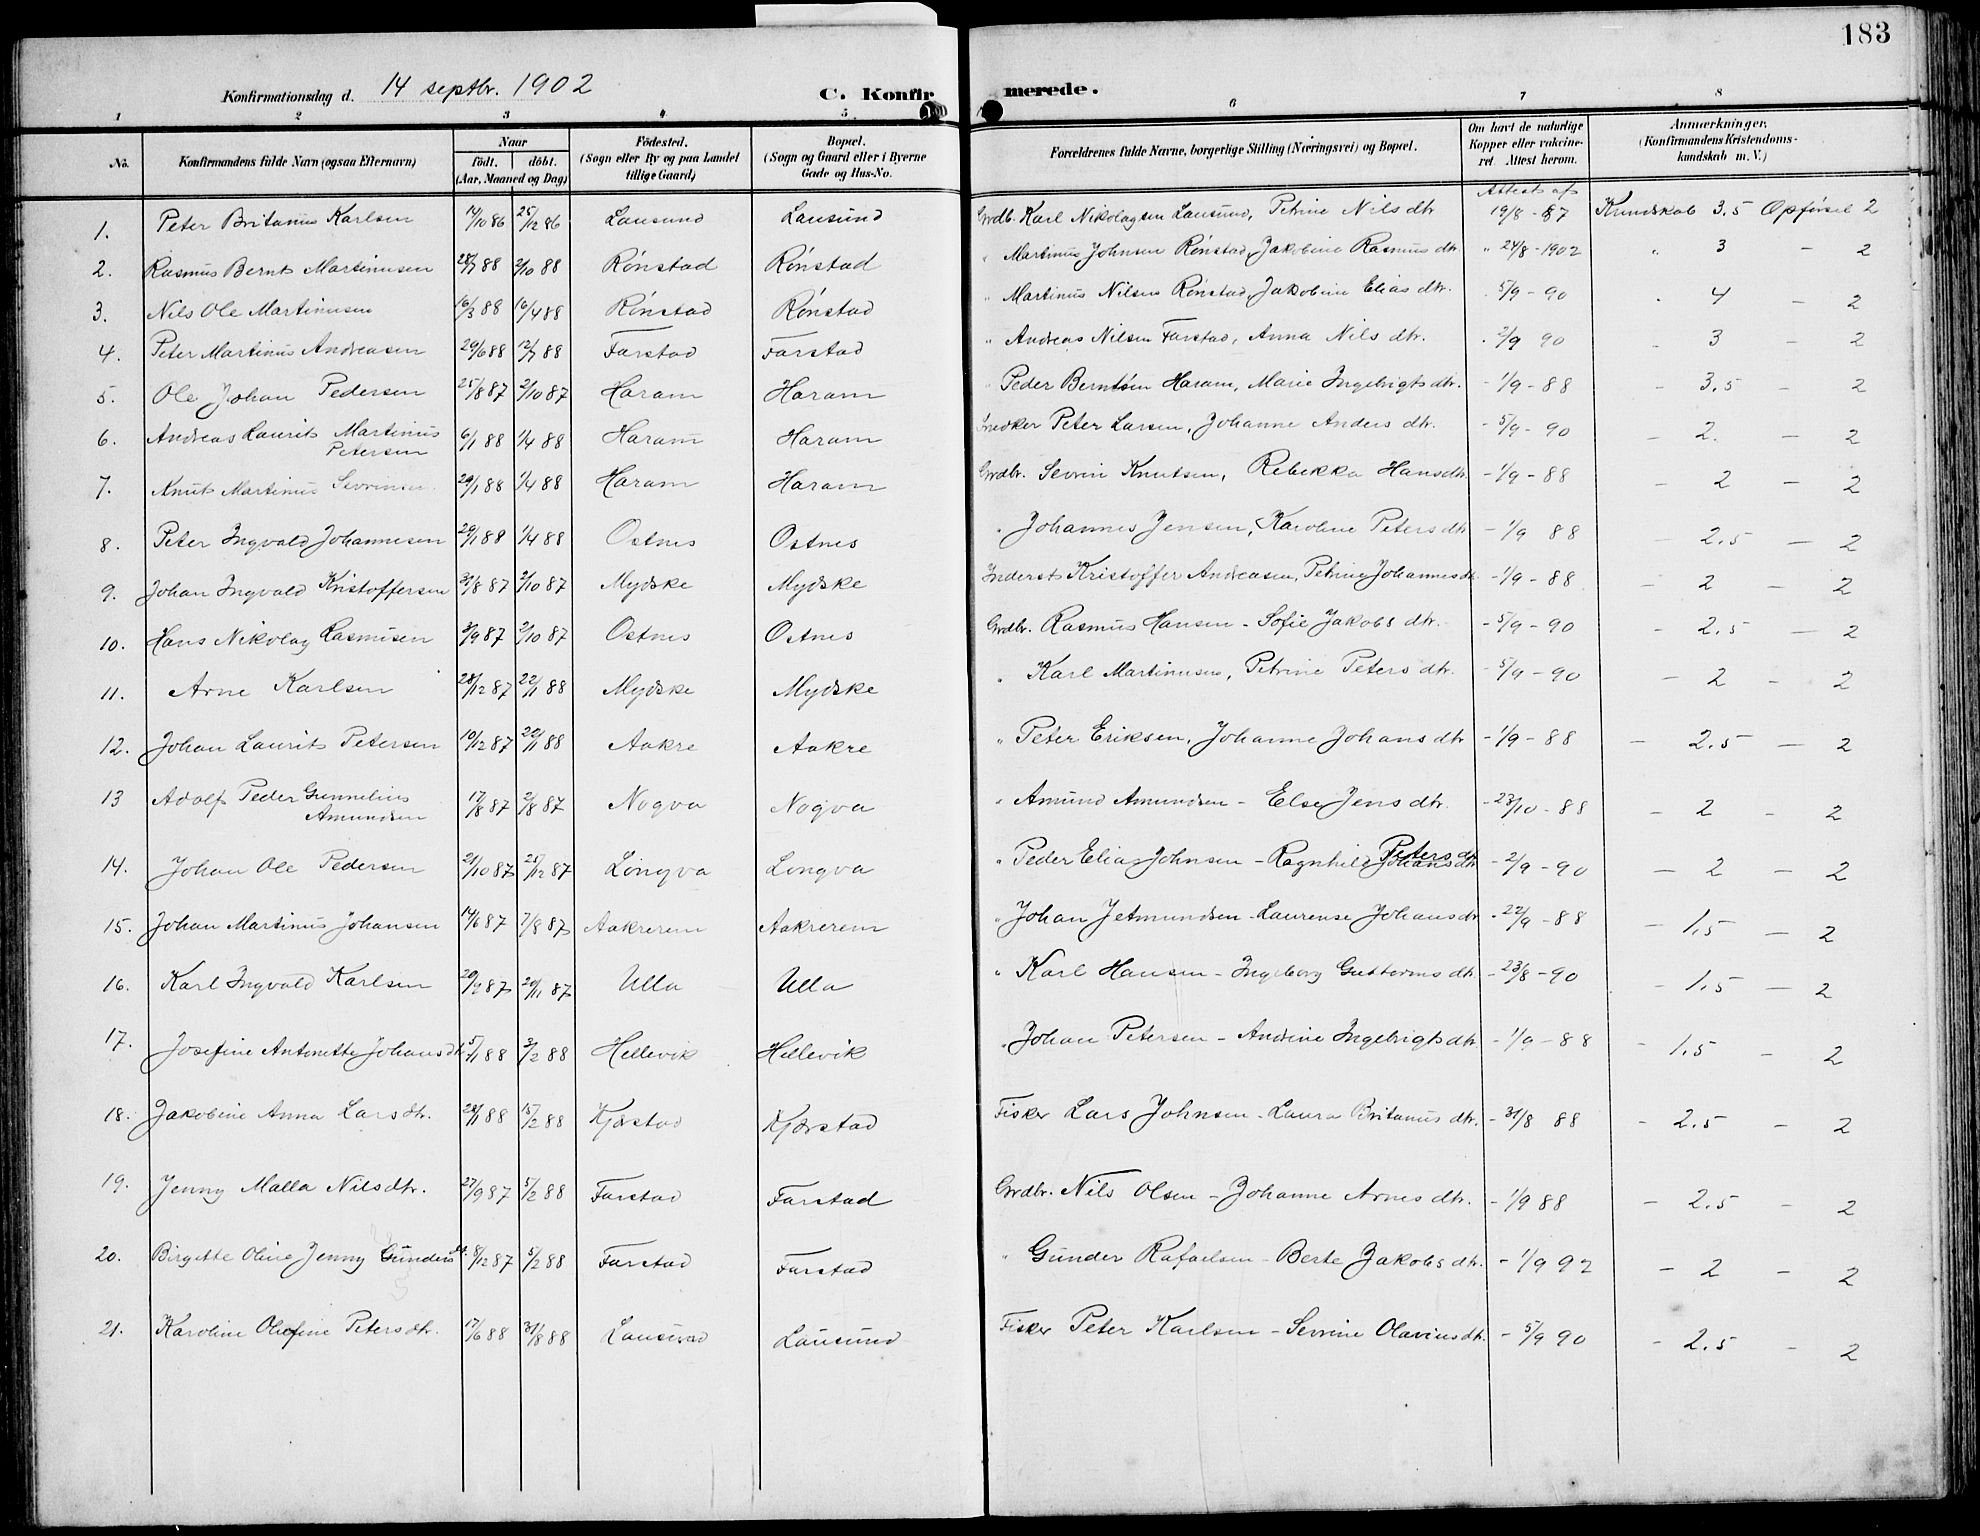 183
Konfirmationsdag d. 14 septbr. 1902
C. Konfirmerede.
1 2 3 4 5 6 7 8
No. Konfirmandens fulde Navn (ogsaa Efternavn) Naar født. døbt. (Aar, Maaned og Dag) Fødested. (Sogn eller By og paa Landet tillige Gaard) Bopæl. (Sogn og Gaard eller i Byerne Gade og Hus-No. Forældrenes fulde Navne, borgerlige Stilling (Næringsvei) og Bopæl. Om havt de naturlige Kopper eller vakcineret. Attest herom. Anmærkninger. (Konfirmandens Kristendomskundskab m. V.)
1. Peter Britanius Karlsen 14/10 86 25/12 86 Lausund Lausund Grdb. Karl Nikolagsen Lausund, Petrine Nilsdtr Attest af 19/8-87 Kundskab 3.5 Opførsel 2
2. Rasmus Bernt Martinusen 28/7 88 2/10 88 Rønstad Rønstad " Martinus Johnsen Rønstad, Jakobine Rasmusdtr. " 24/8-1902 " 3 - 2
3. Nils Ole Martinusen 16/3 88 16/4 88 Rønstad Rønstad " Martinus Nilsen Rønstad, Jakobine Eliasdtr. 5/9-90 4 - 2
4. Peter Martinus Andreasen 29/6 88 12/7 88 Farstad Farstad " Andreas Nilsen Farstad, Anna Nilsdtr. 2/9 90 3 - 2
5. Ole Johan Pedersen 25/8 87 2/10 87 Haram Haram " Peder Berntsen Haram, Marie Ingebrigtsdtr. - 1/9-88 - 3.5 - 2
6. Andreas Laurits Martinius Petersen 6/1 88 1/4 88 Haram Haram Snedker Peter Larsen, Johanne Andersdtr. - 5/9-90 - 2. - 2
7. Knut Martinus Sevrinsen 29/1 88 1/4 88 Haram Haram Grdbr. Sevrin Knutsen, Rebekka Hansdtr - 1/9-88 - 2 - 2
8. Peter Ingvald Johannesen 29/1 88 1/4 88 Ostnes Ostnes " Johannes Jensen, Karoline Petersdtr - 1/9 88 - 2.5 - 2
9. Johan Ingvald Kristoffersen 31/8 87 2/10 87 Mydske Mydske Inderst Kristoffer Andreasen, Petrine Johannesdt. - 1/9-88 - 2 - 2
10. Hans Nikolay Rasmusen 3/9 87 2/10 87 Ostnes Ostnes Grdbr. Rasmus Hansen - Sofie Jakobsdtr. - 5/9-90 - 2.5 - 2
11. Arne Karlsen 28/12 87 22/1 88 Mydske Mydske " Karl Martinusen, Petrine Petersdtr. - 5/9-90 - 2 - 2
12. Johan Laurits Petersen 10/12 87 22/1 88 Aakre Aakre " Peter Eriksen, Johanne Johansdtr - 1/9-88 - 2.5 - 2
13 Adolf Peder Gunnelius Amundsen 17/8 87 2/8 87 Nogva Nogva " Amund Amundsen - Else Jensdtr. - 23/10-88 - 2 - 2
14. Johan Ole Pedersen 21/10 87 25/12 87 Longva Longva " Peder Elias Johnsen - Ragnhild Petersdtr - 2/9-90 - 2 - 2
15. Johan Martinus Johansen 14/6 87 7/8 87 Aakrerem Aakrerem " Johan Jetmundsen - Laurense Johansdtr - 22/9-88 - 1,5 - 2
16. Karl Ingvald Karlsen 20/9 87 20/11 87 Ulla Ulla " Karl Hansen - Ingeborg Guttormsdtr. - 23/8-90 - 1,5 - 2
17. Josefine Antonette Johansdtr 5/1 88 3/2 88 Hellevik Hellevik " Johan Petersen - Andrine Ingebrigtsdtr - 1/9-88 - 1,5 - 2
18. Jakobine Anna Larsdtr. 28/1 88 15/2 88 Kjørstad Kjørstad Fisker Lars Johnsen - Laura Britaniusdtr. - 31/8 88 - 2.5 - 2
19. Jenny Malla Nilsdtr. 27/9 87 5/2 88 Farstad Farstad Grdbr. Nils Olsen - Johanne Arnesdtr. - 1/9 88 - 2.5 - 2
20. Birgitte Oline Jenny Gundersdt. 8/12 87 5/2 88 Farstad Farstad " Gunder Rafaelsen - Berte Jakobsdtr. - 1/9 92 - 2 - 2
21. Karoline Olufine Petersdtr. 17/6 88 31/8 88 Lausund Lausund Fisker Peter Karlsen - Sevrine Olaviusdtr. - 5/9 90 - 2.5 - 2